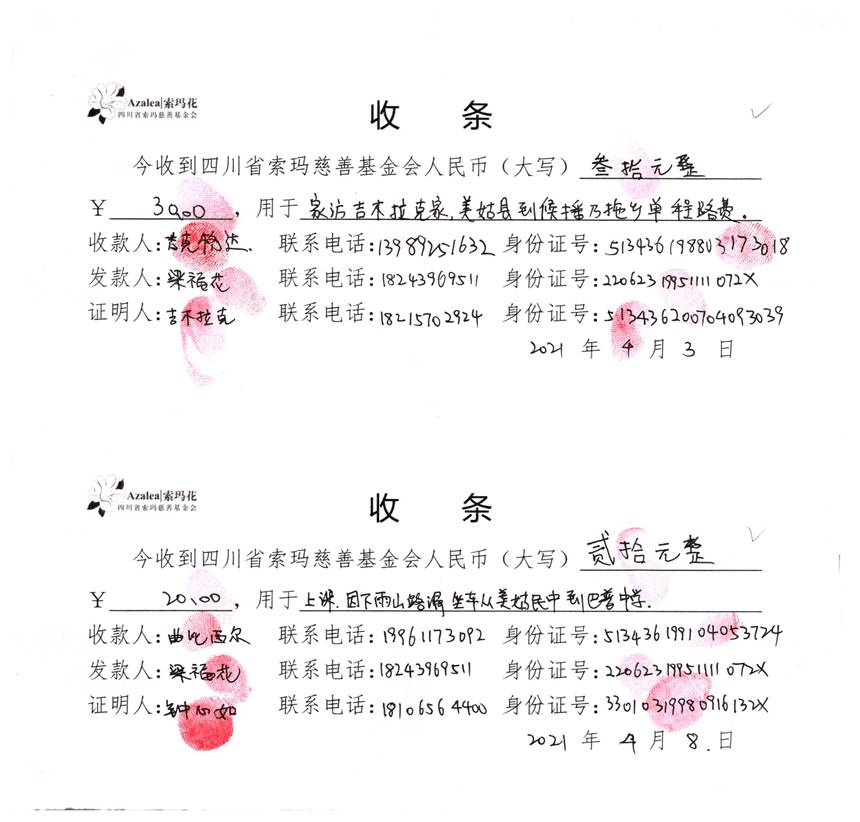 Azalea|索玛花
四川省索玛慈善基金会
收 条
今收到四川省索玛慈善基金会人民币（大写）叁拾元整
￥ 30.00 ，用于 家访吉木拉克家,美姑县到候播乃拖乡单程路费。
收款人:吉克物达. 联系电话:13989251632 身份证号:513436198803173018
发款人:梁福花 联系电话:18243969511 身份证号:22062319951111072X
证明人:吉木拉克 联系电话:18215702924 身份证号:513436200704093039
2021 年 4 月 3 日
Azalea|索玛花
四川省索玛慈善基金会
收 条
今收到四川省索玛慈善基金会人民币（大写）贰拾元整
￥ 20.00 ，用于 上课.因下雨山路滑坐车从美姑民中到巴普中学.
收款人:曲比西尔 联系电话:19961173092 身份证号:513436199104053724
发款人:梁福花 联系电话:18243969511 身份证号:22062319951111072X
证明人:钟心如 联系电话:18106564400 身份证号:33010319980916132X
2021 年 4 月 8.日